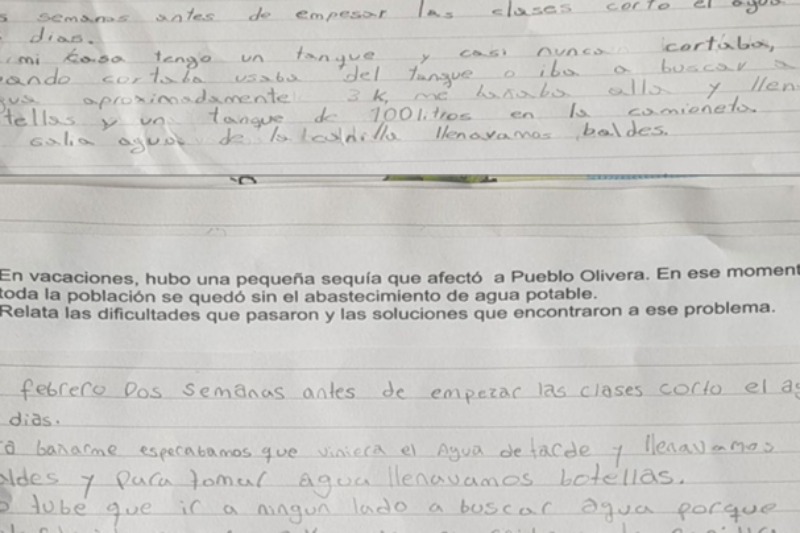 semanas antes de empesar las clases corto el agua
dias.
mi casa tengo un tanque y casi nunca cortaba,
ando cortaba usaba del tanque o iba a buscar a
gua aproximadamente 3 k, me bañaba alla y llen
tellas y un tanque de 100 litros en la camioneta.
salia agua de la llenavamos baldes.
En vacaciones, hubo una pequeña sequía que afectó a Pueblo Olivera. En ese moment
toda la población se quedó sin el abastecimiento de agua potable.
Relata las dificultades que pasaron y las soluciones que encontraron a ese problema.
febrero Dos semanas antes de empezar las clases corto el ag
dias.
a bañarme esperabamos que viniera el Agua de tarde y llenavamos
aldes y para tomar agua llenavamos botellas.
o tube que ir a ningun lado a buscar agua porque